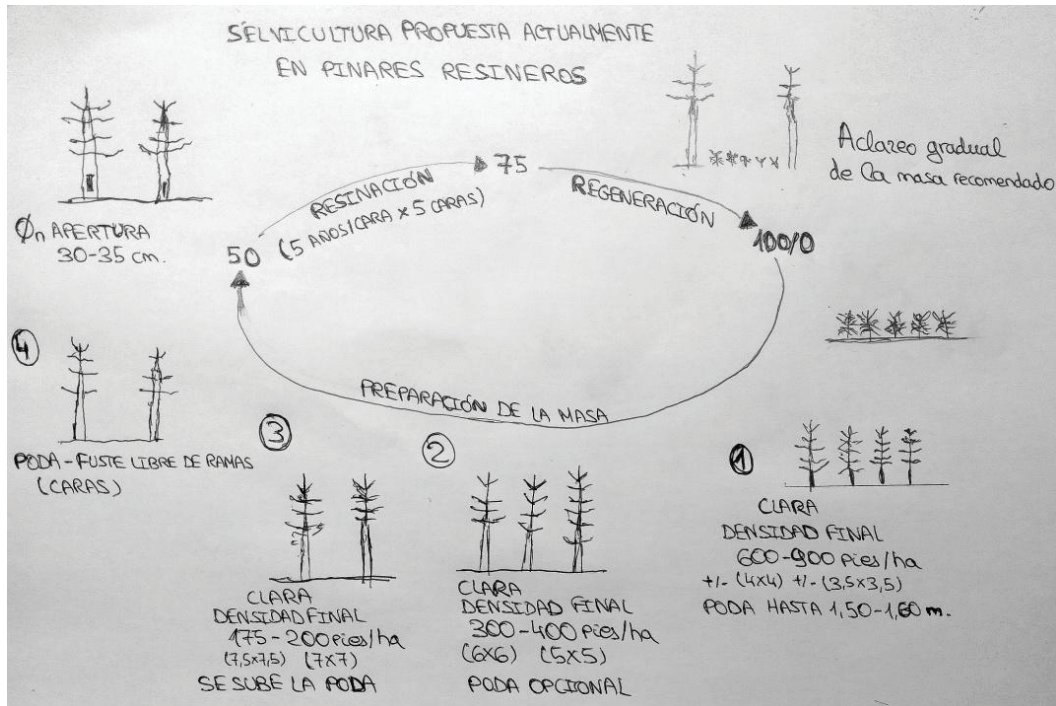 SELVICULTURA PROPUESTA ACTUALMENTE
EN PINARES RESINEROS
Aclareo gradual
de la masa recomendado
Øn APERTURA
30-35 cm.
50
RESINACIÓN
(5 AÑOS/CARA X 5 CARAS)
75
REGENERACIÓN
100/0
PREPARACIÓN DE LA MASA
4
PODA - FUSTE LIBRE DE RAMAS
(CARAS)
3
CLARA
DENSIDAD FINAL
175-200 pies/ha
(7,5x7,5) (7x7)
SE SUBE LA PODA
2
CLARA
DENSIDAD FINAL
300-400 pies/ha
(6x6) (5x5)
PODA OPCIONAL
1
CLARA
DENSIDAD FINAL
600-900 pies/ha
+/- (4x4) +/- (3,5x3,5)
PODA HASTA 1,50-1,60 m.